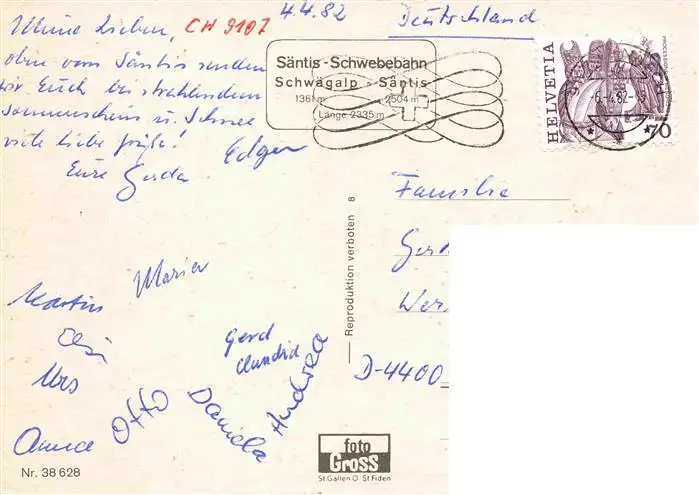 Meine Lieben, CH 9107
4.4.82
Deutschland
oben vom Säntis senden
wir Euch bei strahlendem
Sonnenschein u. Schnee
viele liebe Grüße!
Eure Gerda Edgar
Säntis-Schwebebahn
Schwägalp - Säntis
1361 m 2504 m
Länge 2335 m
HELVETIA
70
-6.4.82-
Familie
Ger
Wer
D-4400
Reproduktion verboten 8
Maria
Martin
Gerd
Urs
Otto
Daniela
Andrea
foto
Gross
St. Gallen O St. Fiden
Nr. 38 628